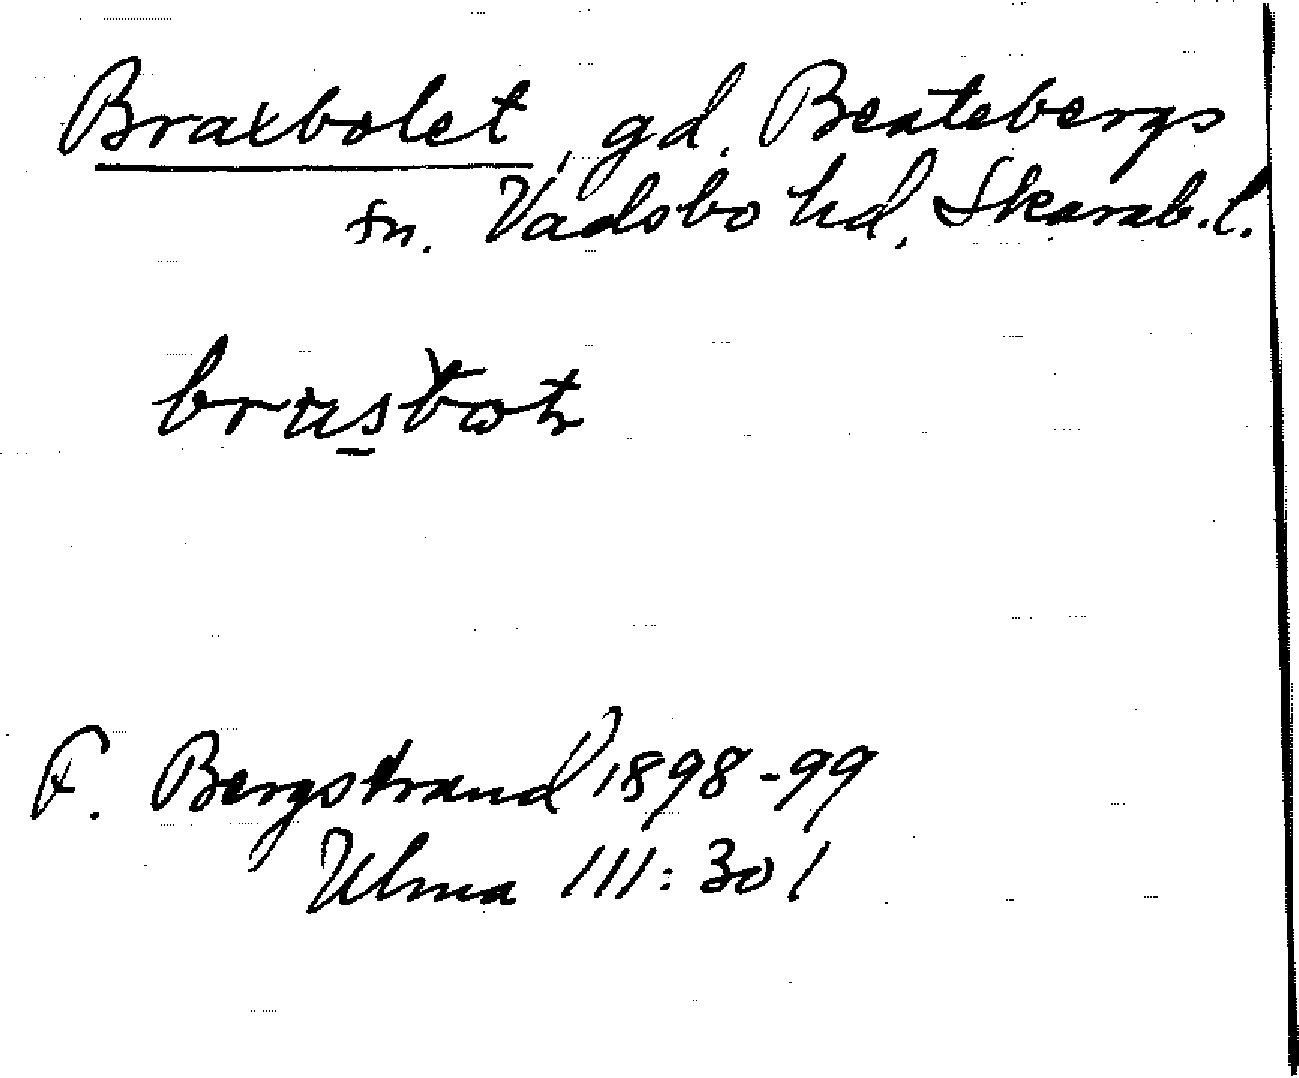 Braxbolet, gd. Beatebergs
sn. Vadsbo hd, Skarab. l.
F. Bergstrand 1898-99
Ulma 111:301